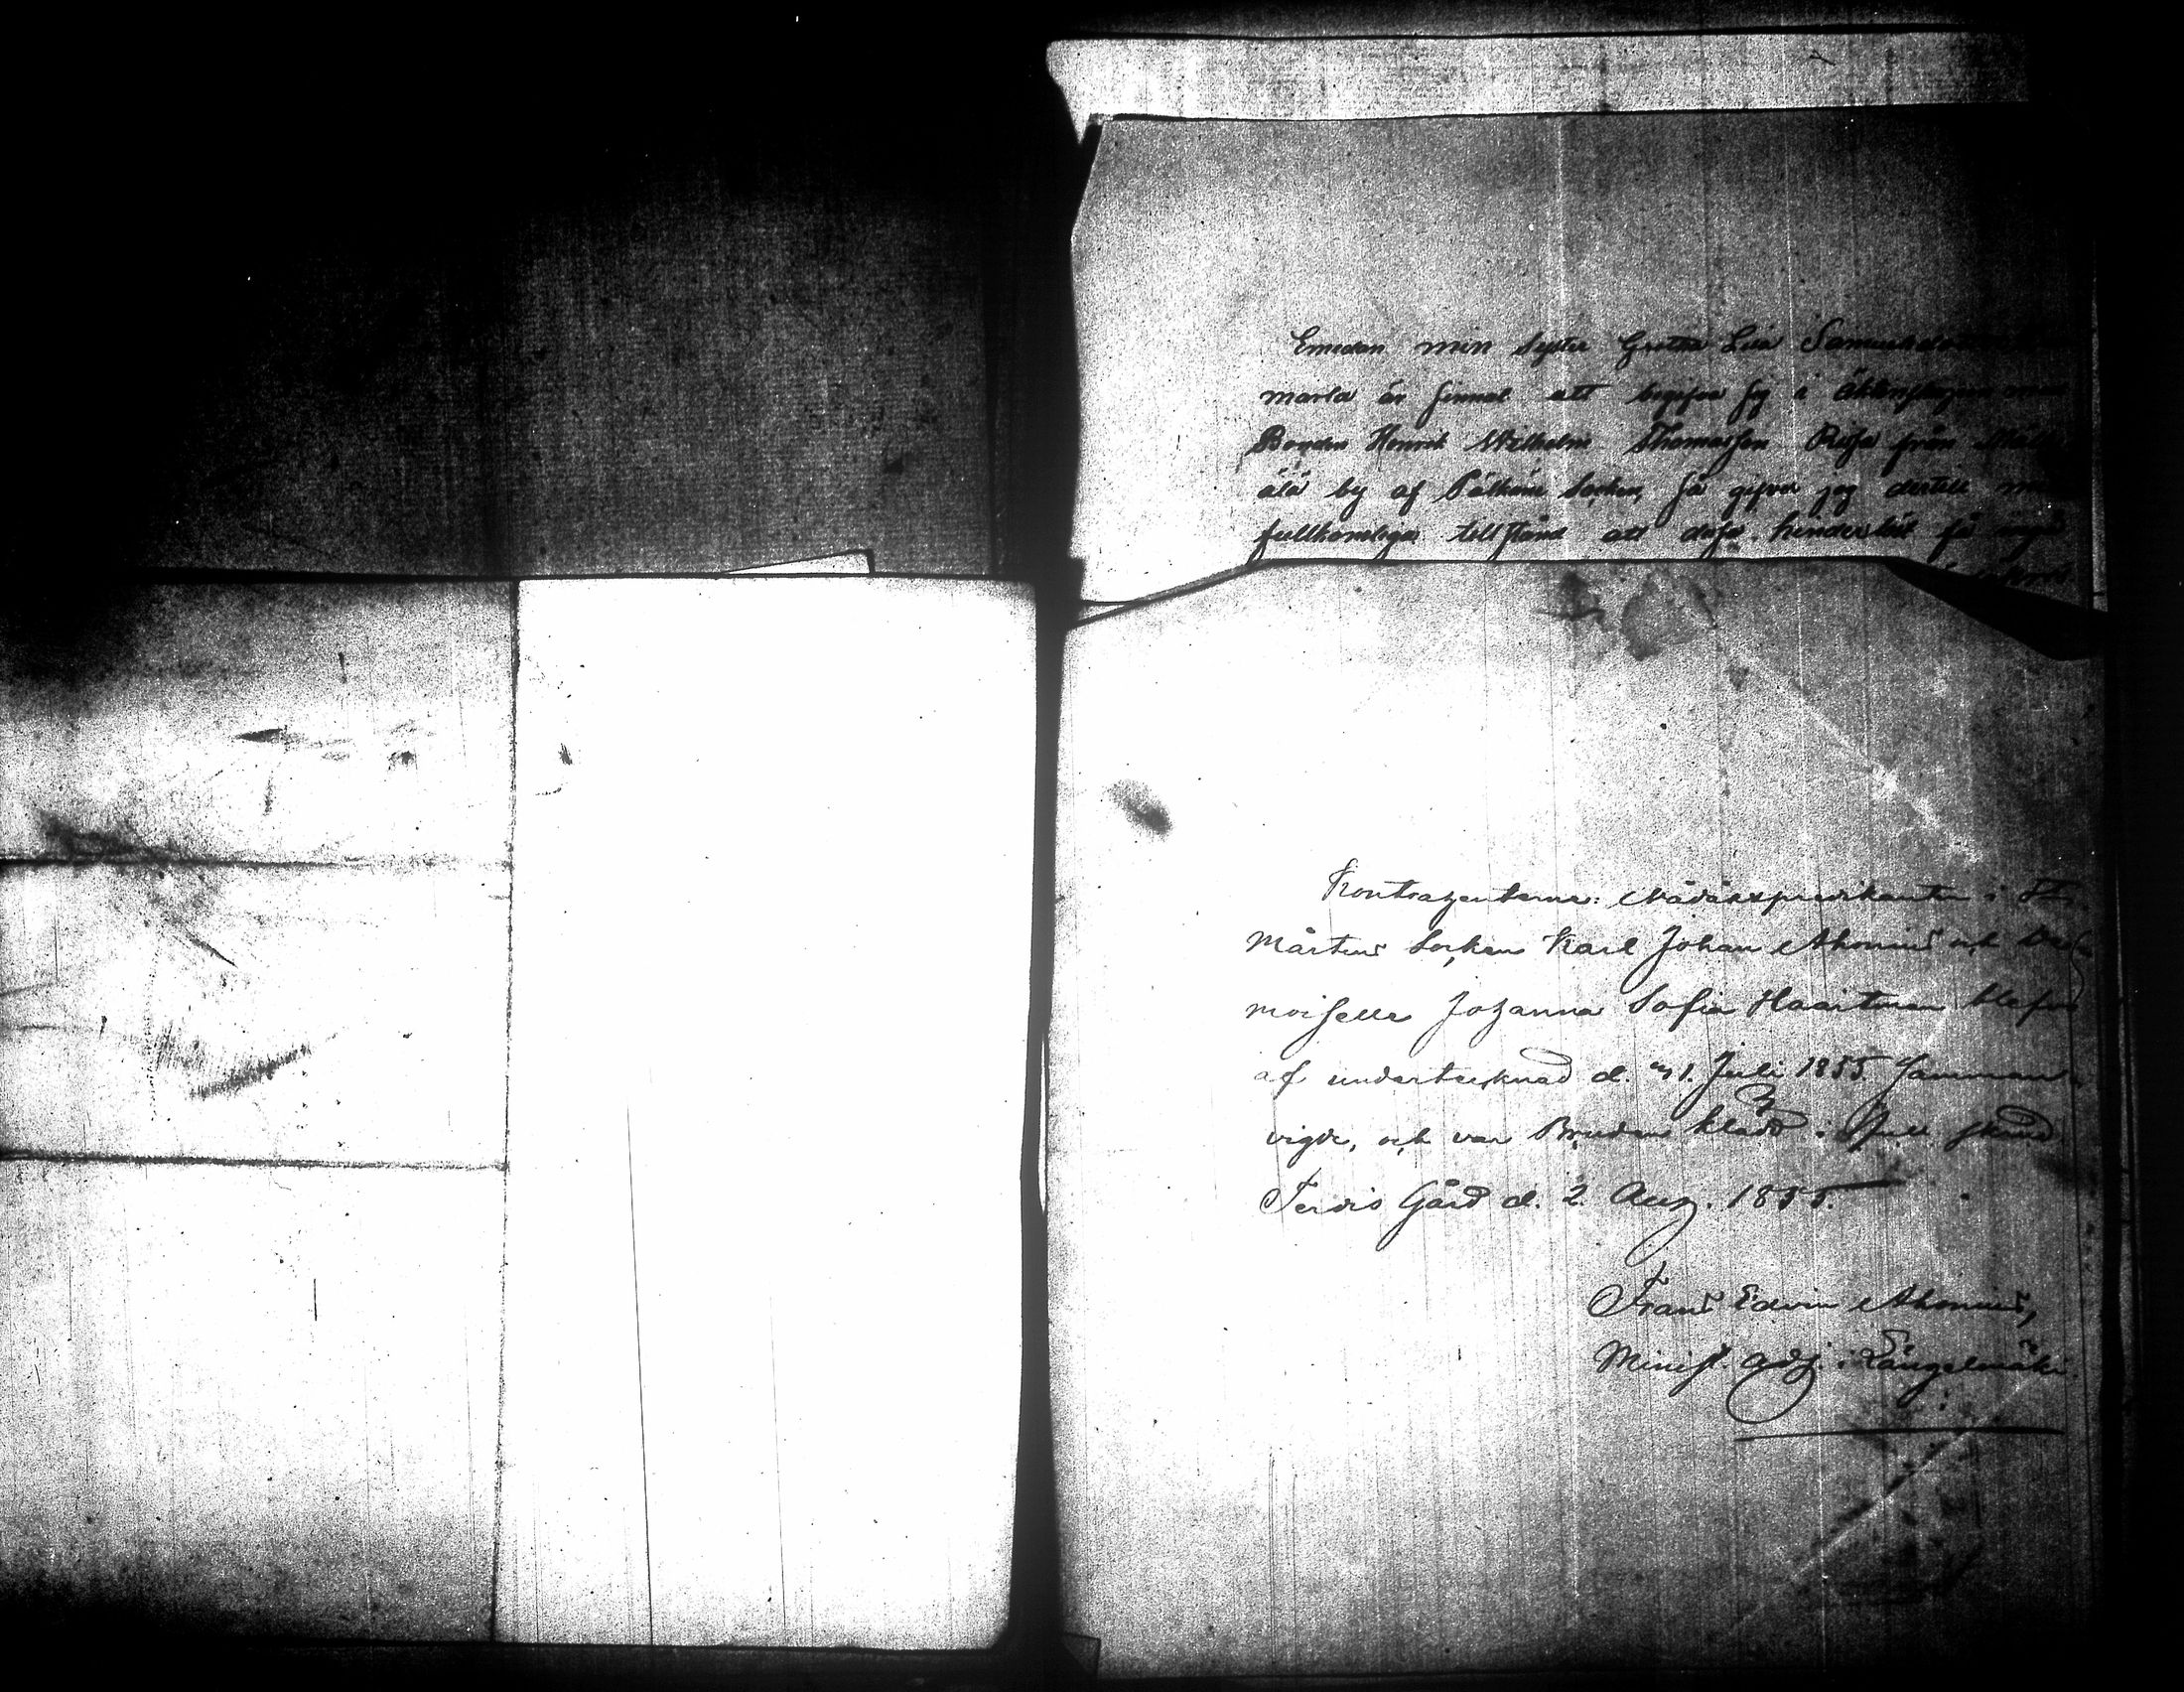 Emedan min Syster Gretha Lisa Samuelsdotter
marla är sinnat att begifva sig i äktenskap med
Bonden Henrik Wilhelm Thomasson Reffa från
älä by af Pälkäne Socken, så gifver jag dertill
fullkomliga tillstånd att desse hinderlöst få ingå
Kontrahenterne: Nådårspredikanten i St.
Mårtens Socken Karl Johan Ahonius och
moiselle Johanna Sofia Haartman blefvo
af undertecknad d. 31. Juli 1855. Samman
vigde, och var Bruden klädd i full skrud.
Terois Gård d. 2. Aug. 1855.
Frans Edvin Ahonius,
Minist. adj. i Längelmäki.